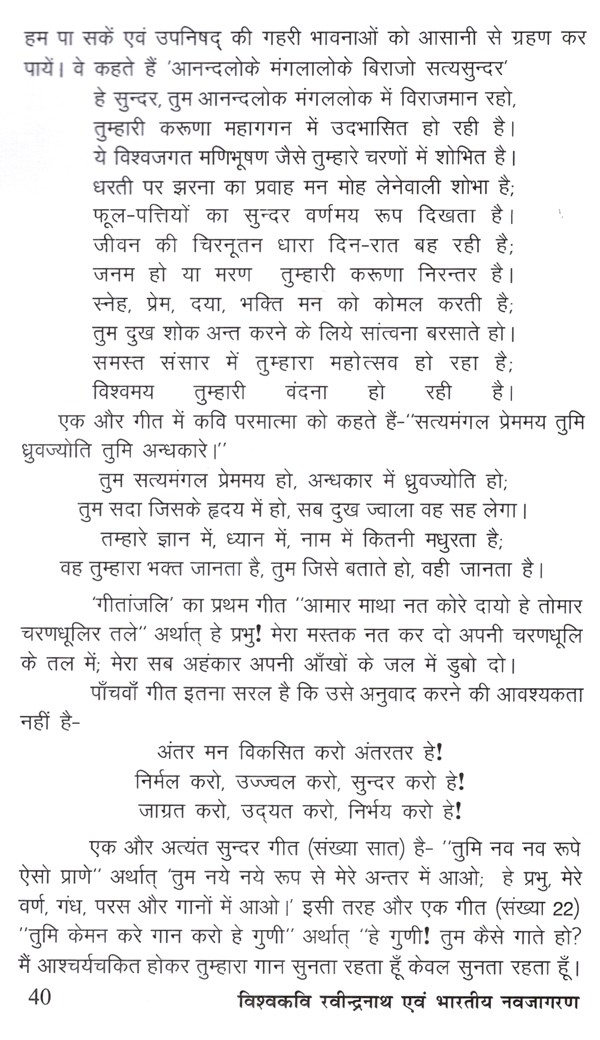 हम पा सकें एवं उपनिषद् की गहरी भावनाओं को आसानी से ग्रहण कर
पायें। वे कहते हैं 'आनन्दलोके मंगलालोके बिराजो सत्यसुन्दर'
हे सुन्दर, तुम आनन्दलोक मंगललोक में विराजमान रहो,
तुम्हारी करूणा महागगन में उदभासित हो रही है।
ये विश्वजगत मणिभूषण जैसे तुम्हारे चरणों में शोभित है।
धरती पर झरना का प्रवाह मन मोह लेनेवाली शोभा है;
फूल-पत्तियों का सुन्दर वर्णमय रूप दिखता है।
जीवन की चिरनूतन धारा दिन-रात बह रही है;
जनम हो या मरण तुम्हारी करूणा निरन्तर है।
स्नेह, प्रेम, दया, भक्ति मन को कोमल करती है;
तुम दुख शोक अन्त करने के लिये सांत्वना बरसाते हो।
समस्त संसार में तुम्हारा महोत्सव हो रहा है;
विश्वमय तुम्हारी वंदना हो रही है।
एक और गीत में कवि परमात्मा को कहते हैं-"सत्यमंगल प्रेममय तुमि
ध्रुवज्योति तुमि अन्धकारे।"
तुम सत्यमंगल प्रेममय हो, अन्धकार में ध्रुवज्योति हो;
तुम सदा जिसके हृदय में हो, सब दुख ज्वाला वह सह लेगा।
तम्हारे ज्ञान में, ध्यान में, नाम में कितनी मधुरता है;
वह तुम्हारा भक्त जानता है, तुम जिसे बताते हो, वही जानता है।
'गीतांजलि' का प्रथम गीत "आमार माथा नत कोरे दायो हे तोमार
चरणधूलिर तले" अर्थात् हे प्रभु! मेरा मस्तक नत कर दो अपनी चरणधूलि
के तल में; मेरा सब अहंकार अपनी आँखों के जल में डुबो दो।
पाँचवाँ गीत इतना सरल है कि उसे अनुवाद करने की आवश्यकता
नहीं है-
अंतर मन विकसित करो अंतरतर हे!
निर्मल करो, उज्ज्वल करो, सुन्दर करो हे!
जाग्रत करो, उद्यत करो, निर्भय करो हे!
एक और अत्यंत सुन्दर गीत (संख्या सात) है- "तुमि नव नव रूपे
ऐसो प्राणे" अर्थात् 'तुम नये नये रूप से मेरे अन्तर में आओ; हे प्रभु, मेरे
वर्ण, गंध, परस और गानों में आओ।' इसी तरह और एक गीत (संख्या 22)
"तुमि केमन करे गान करो हे गुणी" अर्थात् "हे गुणी! तुम कैसे गाते हो?
मैं आश्चर्यचकित होकर तुम्हारा गान सुनता रहता हूँ केवल सुनता रहता हूँ।
40 विश्वकवि रवीन्द्रनाथ एवं भारतीय नवजागरण